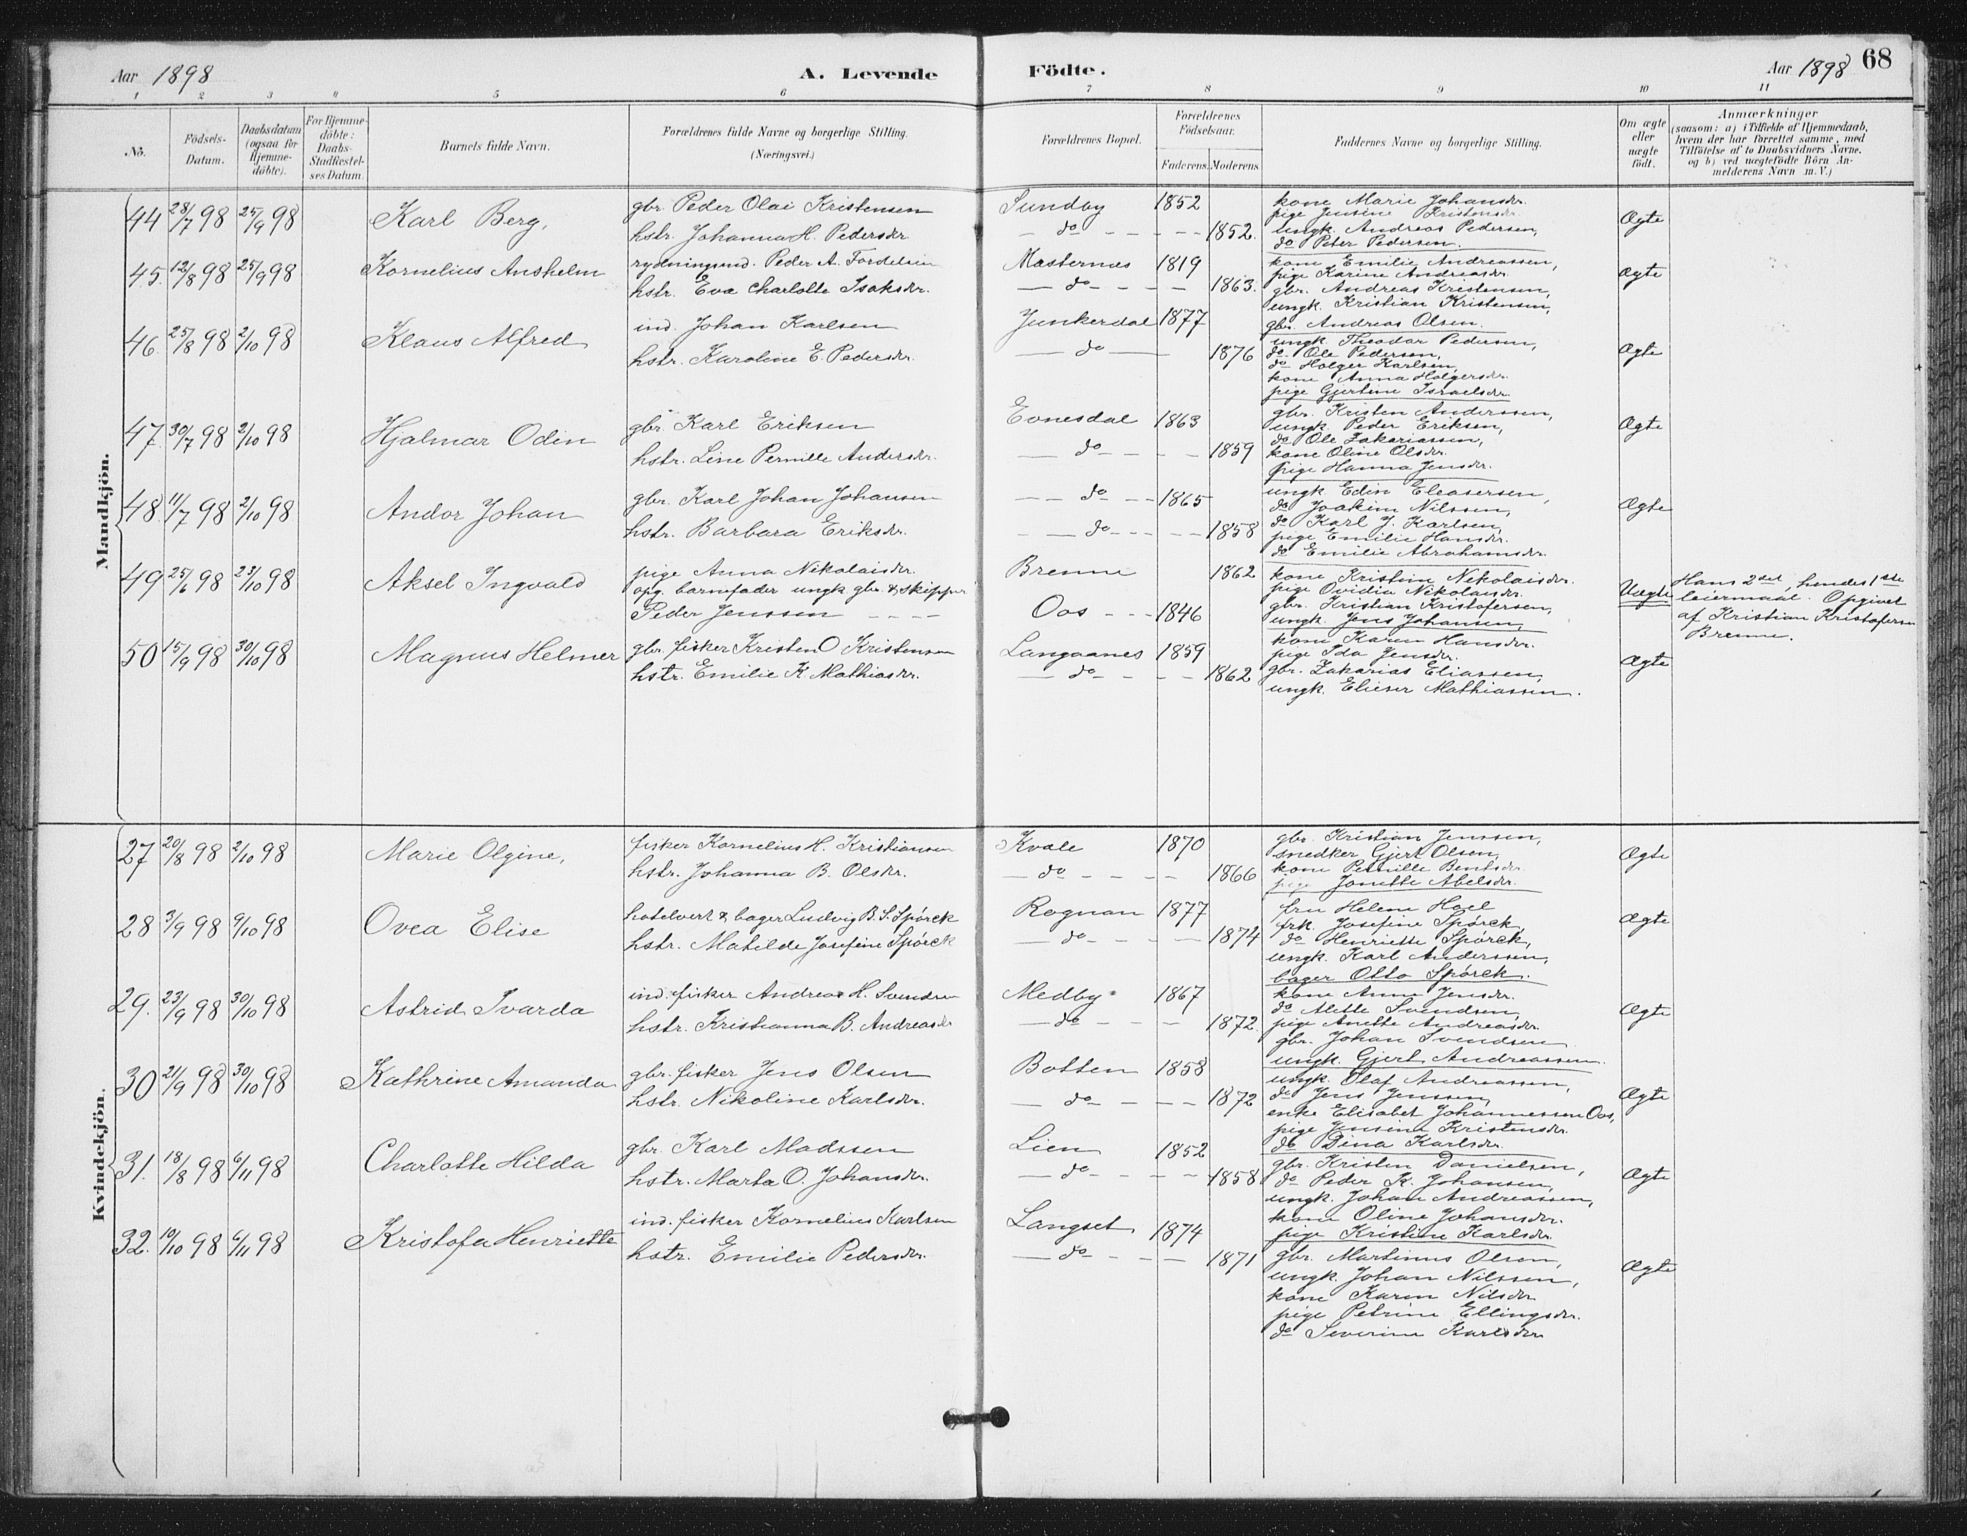 Aar 1898
A. Levende
Födte.
Aar 1898 68
1 2 3 4 5 6 7 8 9 10 11
No.
Födsels-Datum.
Daabsdatum (ogsaa for Hjemme-döbte).
For Hjemme-döbte: Daabs-Stadfæstel-ses Datum.
Barnets fulde Navn.
Forældrenes fulde Navne og borgerlige Stilling.
(Næringsvei.)
Forældrenes Bopæl.
Forældrenes Födselsaar.
Faderens. Moderens.
Faddernes Navne og borgerlige Stilling.
Om ægte eller uægte födt.
Anmærkninger
(saasom: a) i Tilfælde af Hjemmedaab, hvem der har forrettet samme, med Tilföielse af to Daabsvidners Navne. og b) ved uægtefödte Börn An-melderens Navn m. V.)
Mandkjön.
44 28/7 98 25/9 98 Karl Berg, gbr. Peder Olai Kristensen Sundby 1852
hstr. Johanna H. Pedersdr. do 1852
kone Marie Johansdr.
pige Jensine Kristensdr.
ungk. Andreas Pedersen,
do Peter Pedersen.
Ægte
45. 12/8 98 25/9 98 Kornelius Anshelm Peder A. Mæsternes 1819
hstr. Eva Charlotte Isaksdr. do 1863.
kone Emilie Andreassen,
pige Karine Andreasdr.
gbr. Andreas Kristensen,
ungk. Kristian Kristensen,
gbr. Andreas Olsen.
Ægte
46. 25/8 98 2/10 98 Klaus Alfred ind. Johan Karlsen Junkerdal 1877
hstr. Karoline E. Pedersdr. do 1876
ungk. Theodor Pedersen,
do Ole Pedersen,
do Holger Karlsen,
kone Anna Holgersdr.
pige Gjertine Israelsdr.
Ægte
47. 30/7 98 2/10 98 Hjalmar Odin gbr. Karl Eriksen Evnesdal 1863
hstr. Line Pernille Andersdr. do 1859
gbr. Kristen Anderssen,
ungk. Peder Eriksen,
do Ole Zakariassen,
kone Oline Olsdr.
pige Hanna Jensdr.
Ægte
48. 11/7 98 2/10 98 Andor Johan gbr. Karl Johan Johansen do 1865
hstr. Barbara Eriksdr. do 1858
ungk Edin Eleasersen,
do Joakim Nilssen,
do Karl J. Karlsen,
pige Emilie Hansdr.
do Emilie Abrahamsdr.
Ægte
49 25/6 98 23/10 98 Aksel Ingvald pige Anna Nikolaisdr. Brenne 1862
opg. barnefader ungk gbr. & skipper
Peder Jenssen Oos 1846
kone Kristine Nikolaisdr.
pige Ovidia Nikolaisdr.
gbr. Kristian Kristofersen,
ungk. Jens Johansen,
Uægte
Hans 2det, hendes 1ste
leiermaal. Opgivet
af Kristian Kristofersen
Brenne.
50 15/9 98 30/10 98 Magnus Helmer gbr. fisker Kristen O Kristensen Langaanes 1859
hstr. Emilie K. Mathiasdr. do 1862
kone Karen Hansdr.
pige Ida Jensdr.
gbr. Zakarias Eliassen,
ungk. Elieser Mathiassen.
Ægte
Kvindekjön.
27 20/8 98 2/10 98 Marie Olgine, fisker Kornelius H. Kristiansen Kvale 1870
hstr. Johanna B. Olsdr. do 1866
gbr. Kristian Jenssen,
snedker Gjert Olsen,
kone Pernille Bentsdr.
pige Jonette Abelsdr.
Ægte
28 3/9 98 9/10 98 Ovea Elise hotelvert & bager Ludvig B. S. Spørck Rognan 1877
hstr. Matilde Josefine Spørck do 1874
fru Helene Hoel
frk. Josefine Spørck,
do Henriette Spørck,
ungk. Karl Anderssen,
bager Otto Spørck.
Ægte
29. 23/9 98 30/10 98 Astrid Ivarda ind. fisker Andreas H. Svendsen Medby 1867
hstr. Kristianna B. Andreasdr do 1872.
kone Anne Jensdr.
do Alette Svendsen,
pige Anette Andreasdr.
gbr. Johan Svendsen
ungk. Gjert Andreassen.
Ægte
30 21/9 98 30/10 98 Kathrine Amanda gbr. fisker Jens Olsen Botten 1858
hstr. Nikoline Karlsdr. do 1872
ungk. Olaf Andreassen,
do Jens Jenssen,
enke Elisabet Johannessen Oos,
pige Jensine Kristensdr.
do Dina Karlsdr.
Ægte
31. 18/8 98 6/11 98 Charlotte Hilda gbr. Karl Madssen Lien 1852
hstr. Marta O. Johansdr. do 1858
gbr. Kristen Danielsen,
do Peder K. Johansen,
ungk. Johan Andreassen,
kone Oline Johansdr.
pige Kristine Karlsdr.
Ægte
32. 19/10 98 6/11 98 Kristofa Henriette ind. fisker Kornelius Karlsen Langset 1874
hstr. Emilie Pedersdr. do 1871
gbr. Martinus Olsen,
ungk. Johan Nilssen,
kone Karen Nilsdr.
pige Petrine Ellingsdr.
do Severine Karlsdr.
Ægte